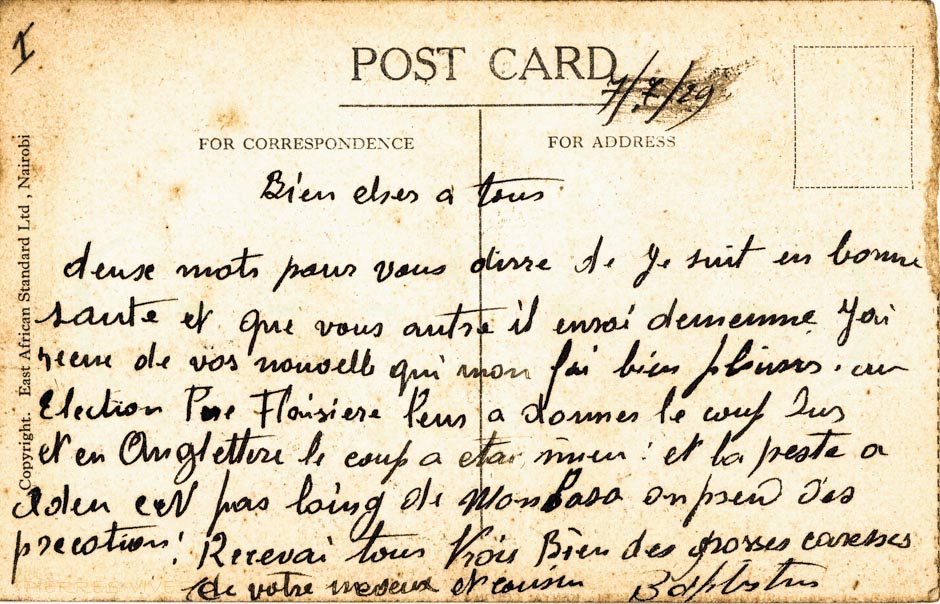 I
POST CARD
7/7/29
FOR CORRESPONDENCE
FOR ADDRESS
Copyright. East African Standard Ltd, Nairobi
Bien cher a tous
deux mots pour vous dirre de Je suit en bonne
sante et que vous autre il ensoi dememme J'ai
recue de vos nouvelle qui mon fai bien plaisire. au
Election Pere Floisiere leur a donner le coup Sur
et en Anglettere le coup a etai mieu! et la peste a
Aden est pas loing de Monbasa on prend des
precotions! Recevai tous trois Bien des grosses caresses
de votre neveux et cousin